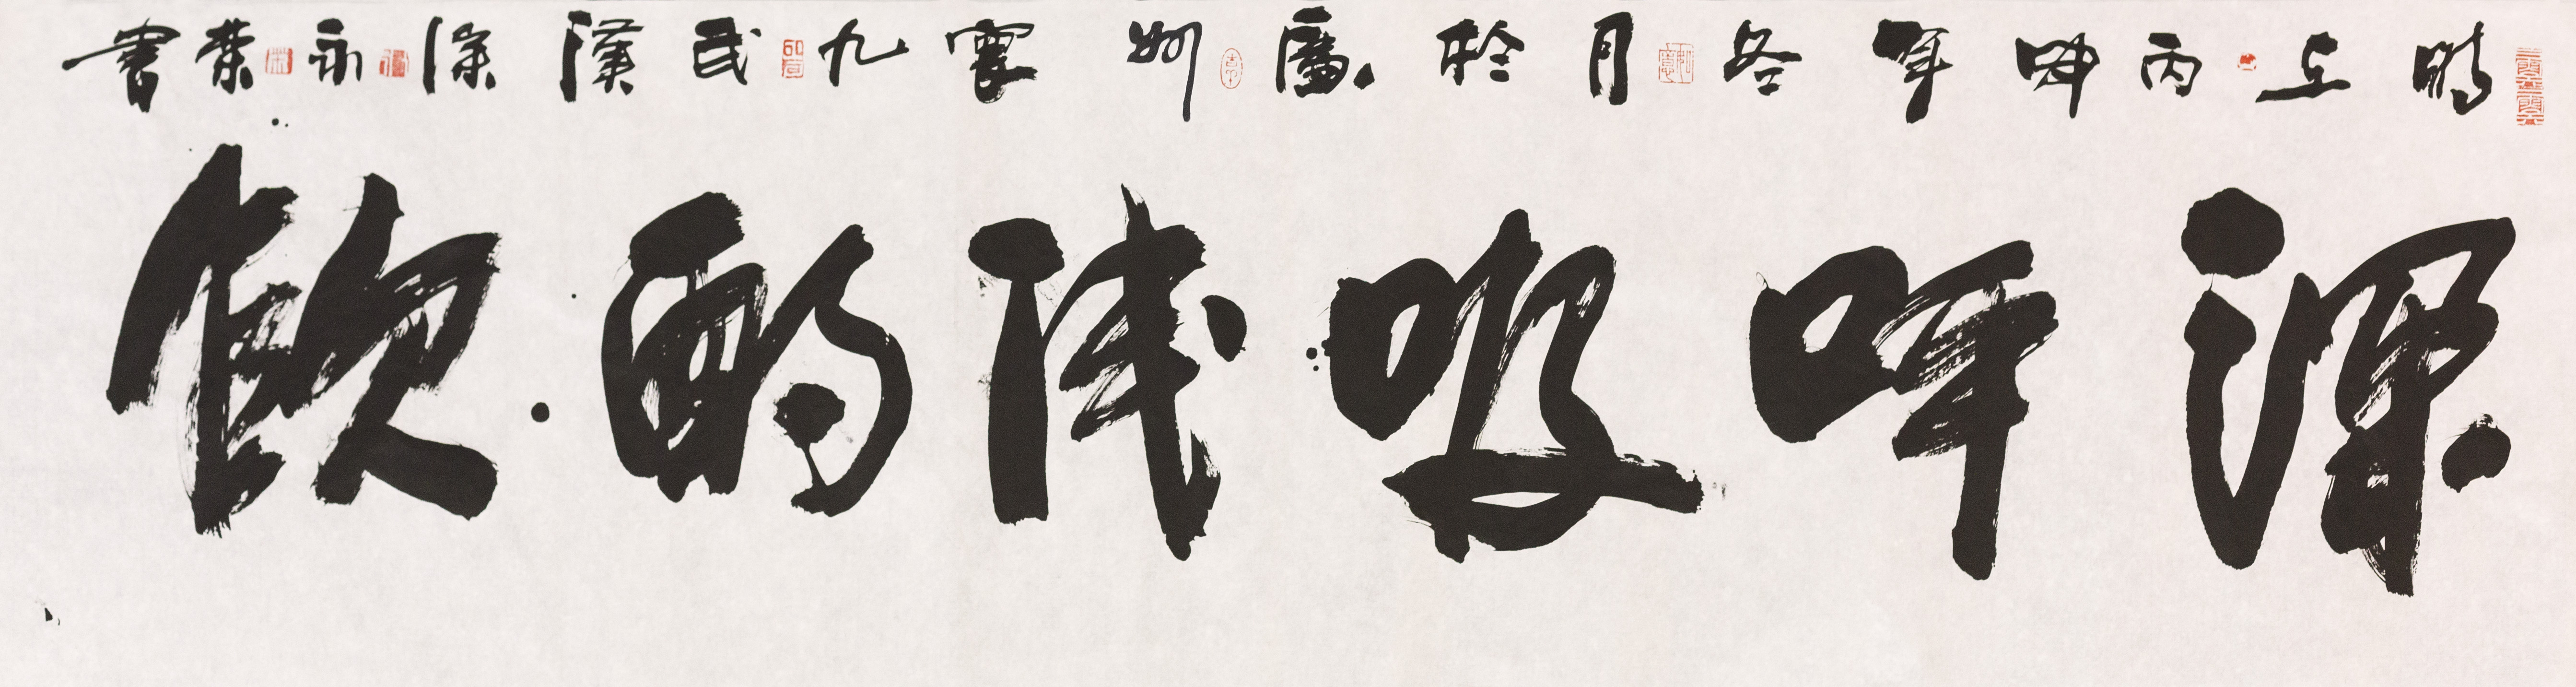 時在丙申年冬月於廣州雲九武漢永葉書
深呼吸浅酌飲